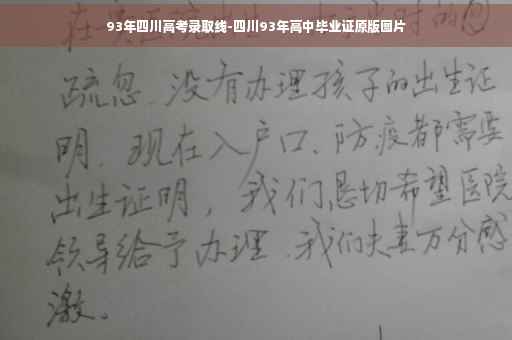 93年四川高考录取线-四川93年高中毕业证原版图片
疏忽、没有办理孩子的出生证
明、现在入户口、防疫都需要
出生证明，我们恳切希望医院
领导给予办理、我们夫妻万分感
激。